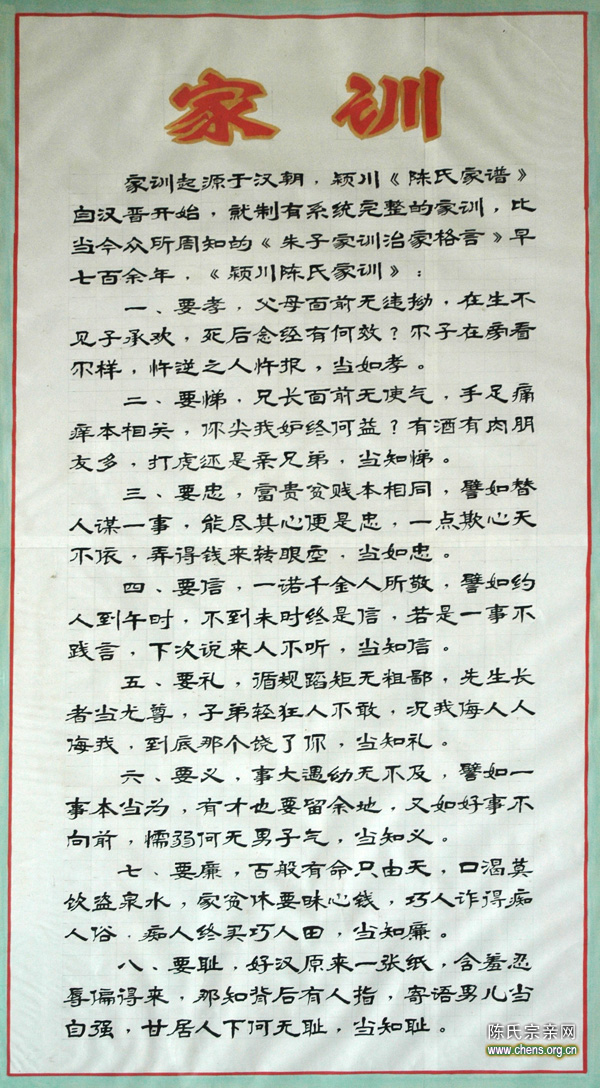 家训
家训起源于汉朝，颖川《陈氏家谱》
自汉晋开始，就制有系统完整的家训，比
当今众所周知的《朱子家训治家格言》早
七百余年，《颖川陈氏家训》：
一、要孝，父母面前无违拗，在生不
见子承欢，死后念经有何效？尔子在旁看
尔样，忤逆之人忤报，当如孝。
二、要悌，兄长面前无使气，手足痛
痒本相关，你尖我妒终何益？有酒有肉朋
友多，打虎还是亲兄弟，当知悌。
三、要忠，富贵贫贱本相同，譬如替
人谋一事，能尽其心便是忠，一点欺心天
不依，弄得钱来转眼空，当如忠。
四、要信，一诺千金人所敬，譬如约
人到午时，不到未时终是信，若是一事不
践言，下次说来人不听，当知信。
五、要礼，循规蹈矩无粗鄙，先生长
者当尤尊，子弟轻狂人不敢，况我侮人人
侮我，到底那个饶了你，当知礼。
六、要义，事大遇幼无不及，譬如一
事本当为，有才也要留余地，又如好事不
向前，懦弱何无男子气，当知义。
七、要廉，百般有命只由天，口渴莫
饮盗泉水，家贫休要昧心钱，巧人诈得痴
人俗．痴人终买巧人田，当知廉。
八、要耻，好汉原来一张纸，含羞忍
辱偏得来，那知背后有人指，寄语男儿当
自强，甘居人下何无耻，当知耻。
陈氏宗亲网
www.chens.org.cn